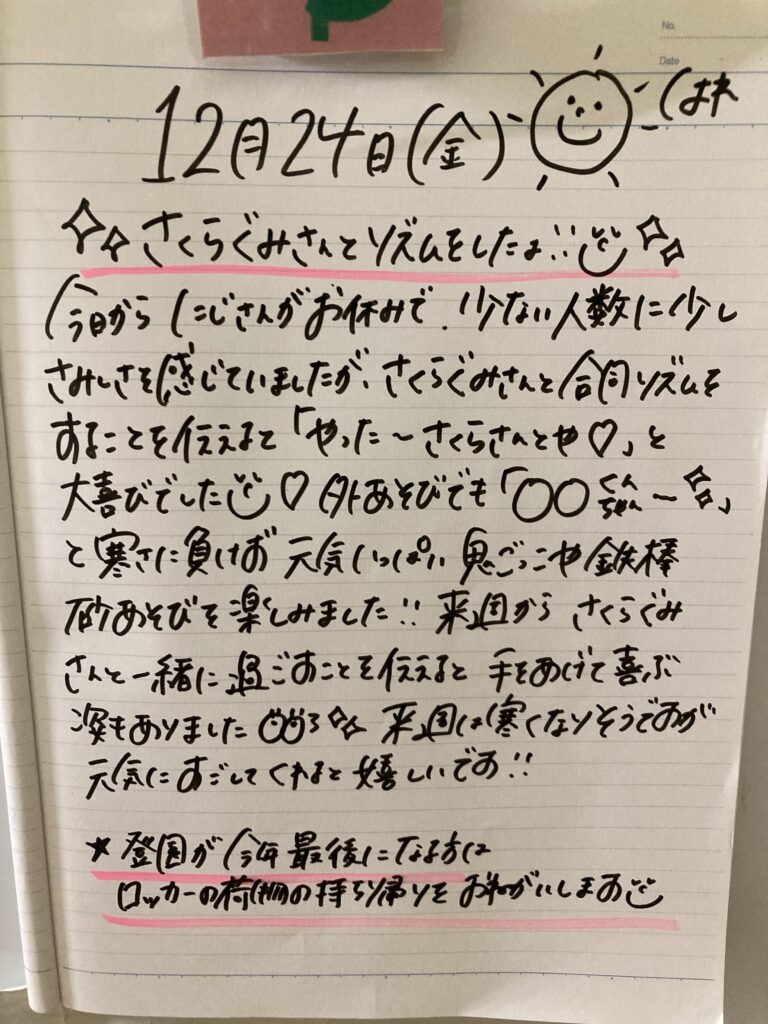 No.
Date
12月24日(金) はれ
さくらぐみさんとリズムをしたよ!!
今日から にじさんがお休みで、少ない人数に少し
さみしさを感じていましたが、さくらぐみさんと合同リズムを
することを伝えると「やった〜さくらさんとや♡」と
大喜びでした♡ 外あそびでも「〇〇くんちゃん〜」
と寒さに負けず 元気いっぱい 鬼ごっこや鉄棒
砂あそびを楽しみました!! 来週から さくらぐみ
さんと一緒に過ごすことを伝えると 手をあげて喜ぶ
姿もありました 来週は寒くなりそうですが
元気にすごしてくれると嬉しいです!!
* 登園が今年最後になる方は
ロッカーの荷物の持ち帰りをお願がいします